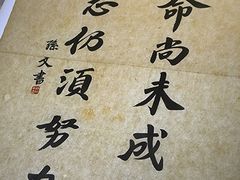 命尚未成
志仍須努力
孫文書